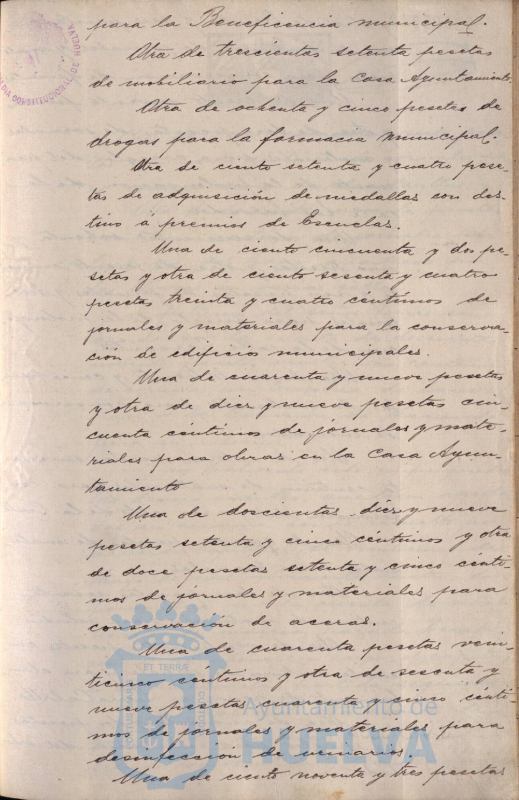 para la Beneficencia municipal.
Otra de trescientas setenta pesetas
de mobiliario para la Casa Ayuntamiento.
Otra de ochenta y cinco pesetas de
drogas para la farmacia municipal.
Otra de ciento setenta y cuatro pese-
tas de adquisición de medallas con des-
tino á premios de Escuelas.
Una de ciento cincuenta y dos pe-
setas y otra de ciento sesenta y cuatro
pesetas treinta y cuatro céntimos de
jornales y materiales para la conserva-
ción de edificios municipales.
Una de cuarenta y nueve pesetas
y otra de diez y nueve pesetas cin-
cuenta céntimos de jornales y mate-
riales para obras en la Casa Ayun-
tamiento
Una de doscientas diez y nueve
pesetas setenta y cinco céntimos y otra
de doce pesetas setenta y cinco cénti-
mos de jornales y materiales para
conservación de aceras.
Una de cuarenta pesetas vein-
ticinco céntimos y otra de sesenta y
nueve pesetas cuarenta y cinco cénti-
mos de jornales y materiales para
desinfección de urinarios.
Una de ciento noventa y tres pesetas
CONSTITUCIONAL DE HUELVA
ET TERRAE
Ayuntamiento de
HUELVA